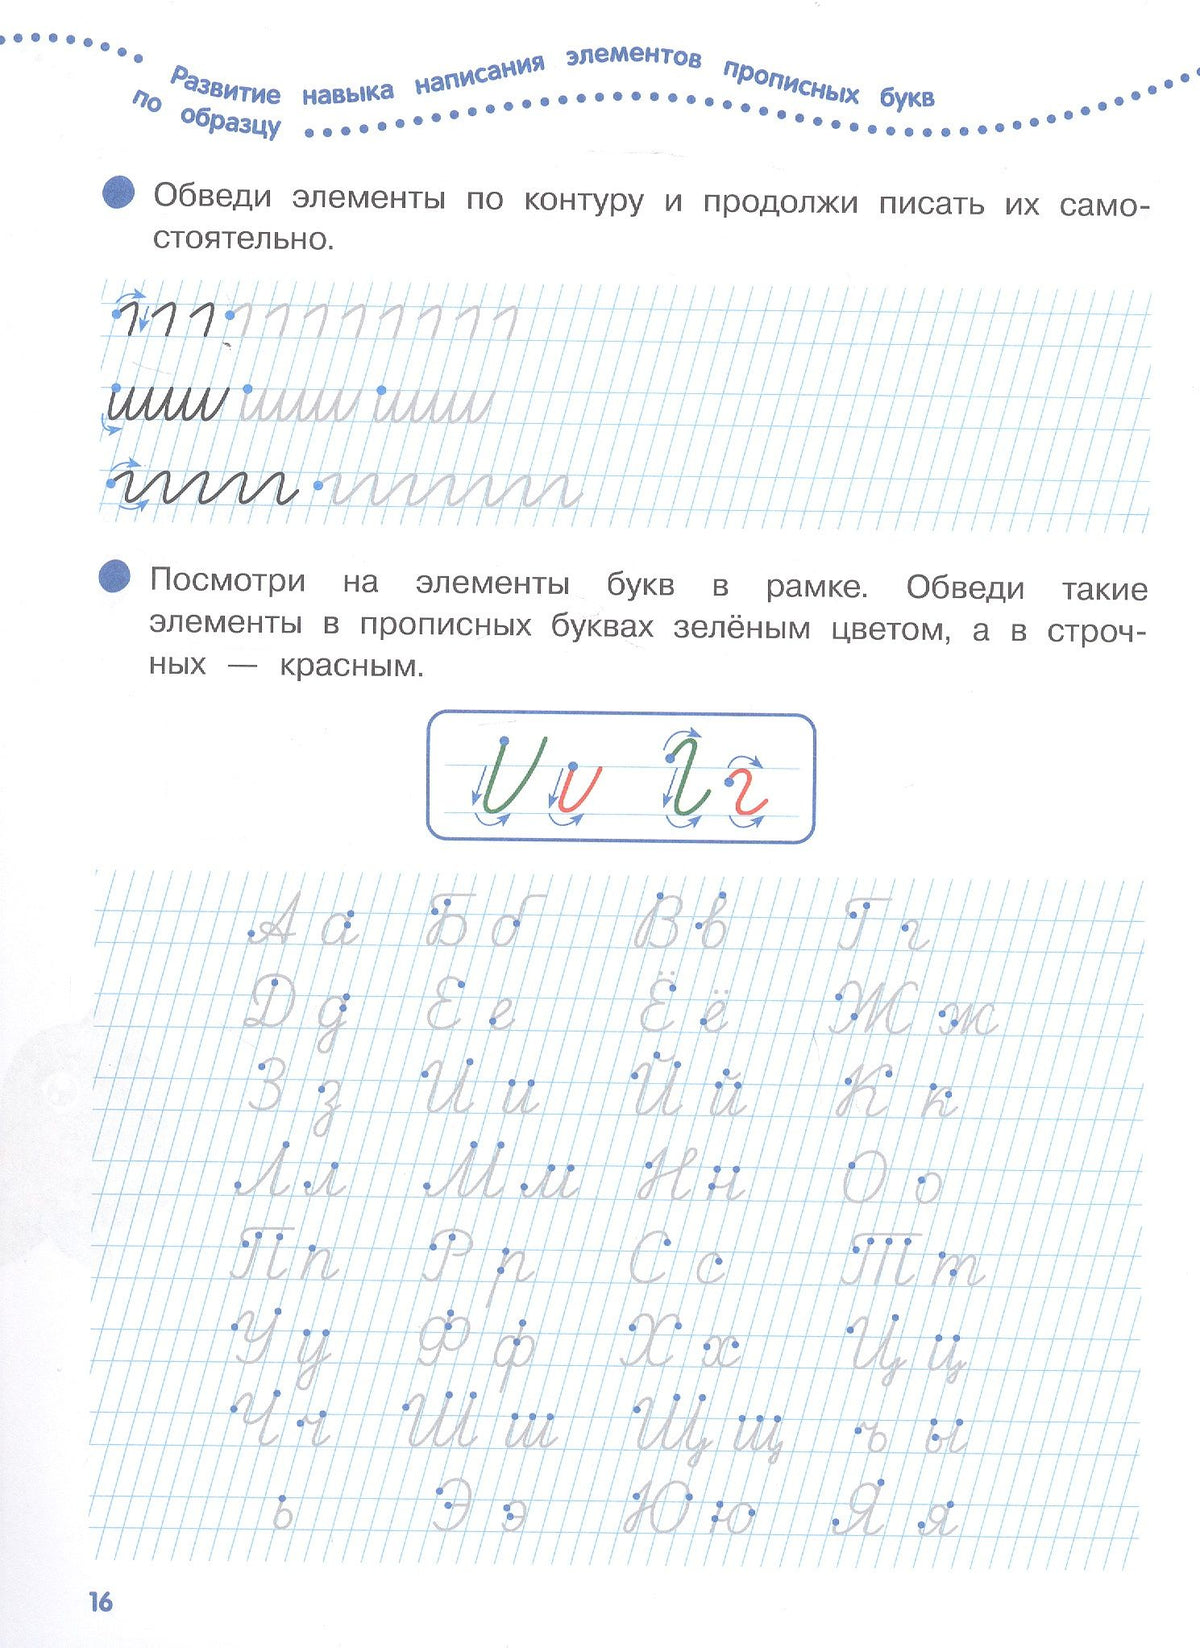 Развитие навыка написания элементов прописных букв
по образцу
Обведи элементы по контуру и продолжи писать их само-
стоятельно.
Посмотри на элементы букв в рамке. Обведи такие
элементы в прописных буквах зелёным цветом, а в строч-
ных — красным.
Аа Бб Вв Гг
Дд Ее Ёё Жж
Зз Ии Йй Кк
Лл Мм Нн Оо
Пп Рр Сс Тт
Уу Фф Хх Цц
Чч Шш Щщ ъ ы
ь Ээ Юю Яя
16